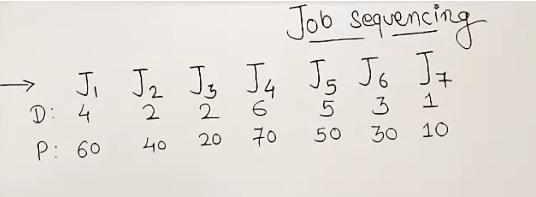 Job sequencing
→ J1 J2 J3 J4 J5 J6 J7
D: 4 2 2 6 5 3 1
P: 60 40 20 70 50 30 10